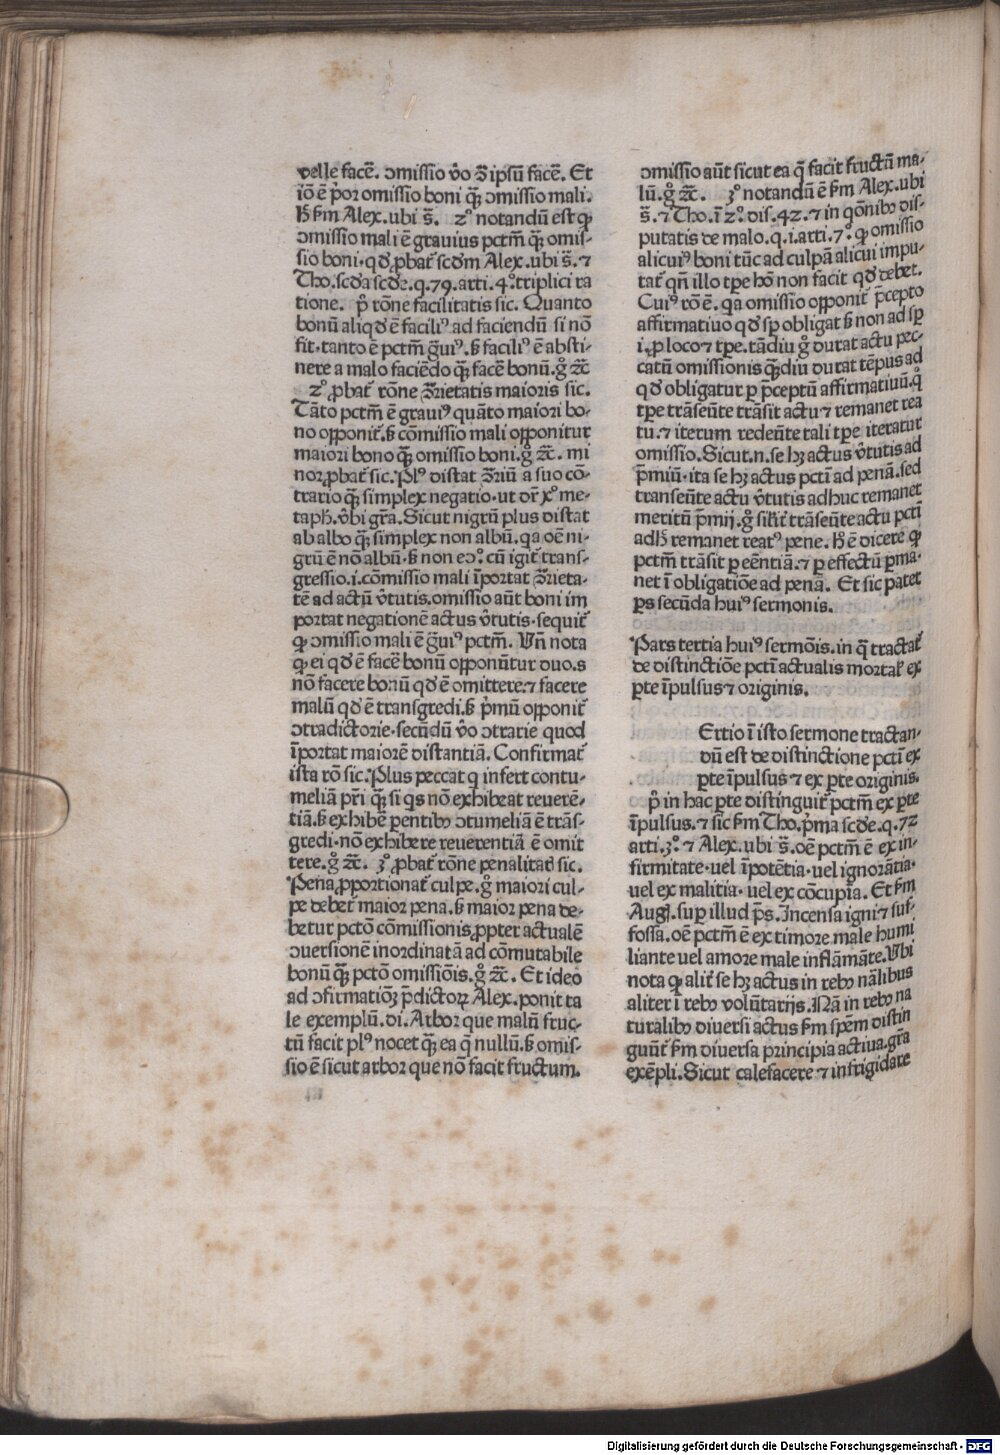 velle facē. ↄmissio v̄o ꝯ̄ ipsū facē. Et
iō ē p̄or omissio boni qꝫ̄ ↄmissio mali.
ħ ẜm Alex. ubi s̄. 2º notandū est ꝙ
ↄmissio mali ē gravius pctm̄ qꝫ̄ omis-
sio boni. qđ ꝓbat᷑ scđm Alex. ubi s̄. ⁊
Tho. scđa scđe. q. 79. arti. 4º. triplici ra
tione. p̊ rōne facilitatis sic. Quanto
bonū aliqđ ē faciliꝰ ad faciendū si nō
fit. tanto ē pctm̄ ḡuiꝰ. ẜ faciliꝰ ē absti-
nere a malo faciēdo qꝫ̄ facē bonū. g̊ ⁊c̄
2º ꝓbat᷑ rōne ꝯ̄rietatis maioris sic.
Tāto pctm̄ ē graviꝰ quāto maiori bo-
no oꝓponit᷑. ẜ cōmissio mali opponitur
maiori bono qꝫ̄ omissio boni. g̊ ⁊c̄. mi
nor ꝓbat᷑ sic. Plꝰ distat ꝯ̄riū a suo cō-
trario qꝫ̄ simplex negatio. ut dr̄ xº me-
taph. v̄bi gr̄a. Sicut nigrū plus distat
ab albo qꝫ̄ simplex non albū. qa oē ni-
grū ē nō albū. ẜ non eↄº. cū igit᷑ trans-
gressio. i. cōmissio mali īportat ꝯ̄rieta-
tē ad actū v̄tutis. omissio aūt boni im
portat negationē actus v̄tutis. sequit᷑
ꝙ ↄmissio mali ē ḡuiꝰ pctm̄. Vn̄ nota
ꝙ ei qđ ē facē bonū opponūtur duo. s
nō facere bonū qđ ē omittere. ⁊ facere
malū qđ ē transgredi. ẜ p̄mū opponit᷑
ↄtradictorie. secūdū v̄o ↄtrarie quod
īportat maiorē distantiā. Confirmat᷑
ista rō sic. Plus peccat q infert contu-
meliā pr̄i qꝫ̄ si qs nō exhibeat reverē-
tiā. ẜ exhibē pentibꝰ ↄtumeliā ē trās-
gredi. nō exhibere reverentiā ē omit
tere. g̊ ⁊c̄. 3º ꝓbat᷑ rōne penalitatis sic.
Pena ꝓportionat᷑ culpe. g̊ maiori cul-
pe debet᷑ maior pena. ẜ maior pena de-
betur pctō cōmissionis ꝓpter actualē
ↄversionē inordinatā ad cōmutabile
bonū qꝫ̄ pctō omissiōis. g̊ ⁊c̄. Et ideo
ad ↄfirmatiōꝫ p̄dictoꝝ Alex. ponit ta
le exemplū. di. Arbor que malū fruc-
tū facit plꝰ nocet qꝫ̄ ea q̄ nullū. ẜ omis-
sio ē sicut arbor que nō facit fructum.
ↄmissio aūt sicut ea q̄ facit fructū ma-
lū. g̊ ⁊c̄. 3º notandū ē ẜm Alex. ubi
s̄. ⁊ Tho. ī 2º. dis. 42. ⁊ in qōnibꝰ dis-
putatis de malo. q. i. arti. 7º. ꝙ omissio
alicuiꝰ boni tūc ad culpā alicui impu-
tat᷑ qn̄ illo tp̄e hō non facit qđ debet.
Cuiꝰ rō ē. qa omissio opponit᷑ p̄cepto
affirmativo qđ sp̄ obligat ẜ non ad sp̄
i. ꝓ loco ⁊ tp̄e. tādiu g̊ durat actu pec-
catū omissionis qꝫ̄diu durat tēpus ad
qđ obligatur ꝑ p̄ceptū affirmativū. q̊
tp̄e trāseūte trāsit actu ⁊ remanet rea
tu. ⁊ iterum redeūte tali tp̄e iteratur
omissio. Sicut. n. se hꝫ actus v̄tutis ad
p̄miū. ita se hꝫ actus pcti ad penā. sed
transeūte actu v̄tutis adhuc remanet
meritū p̄mij. g̊ silit᷑ trāseūte actu pcti
adħ remanet reatꝰ pene. ħ ē dicere ꝙ
pctm̄ trāsit ꝑ eēntiā. ⁊ ꝑ effectū ꝑma-
net ī obligatiōe ad penā. Et sic patet
ꝑs secūda huiꝰ sermonis.
Pars tertia huiꝰ sermōis. in q̄ tractat᷑
de distinctiōe pcti actualis mortal᷑ ex
ꝑte īpulsus ⁊ originis.
Ertio ī isto sermone tractan-
dū est de distinctione pcti ex
ꝑte īpulsus ⁊ ex ꝑte originis.
p̊ in hac ꝑte distinguit᷑ pctm̄ ex ꝑte
īpulsus. ⁊ sic ẜm Tho. p̄ma scđe. q. 72
arti. 3º. ⁊ Alex. ubi s̄. oē pctm̄ ē ex in-
firmitate. vel īpotētia. vel ignorātia.
vel ex malitia. vel ex cōcupīa. Et ẜm
Aug. sup̄ illud p̄s. Incensa igni ⁊ suf-
fossa. oē pctm̄ ē ex timore male humi
liante vel amore male inflāmāte. Ubi
nota ꝙ alit᷑ se hꝫ actus in rebꝰ nālibus
aliter ī rebꝰ volūtarijs. Nā in rebꝰ na
turalibꝰ diversi actus ẜm sp̄em distin
guūt᷑ ẜm diversa principia activa. gr̄a
exēpli. Sicut calefacere ⁊ infrigidare
Digitalisierung gefördert durch die Deutsche Forschungsgemeinschaft - DFG